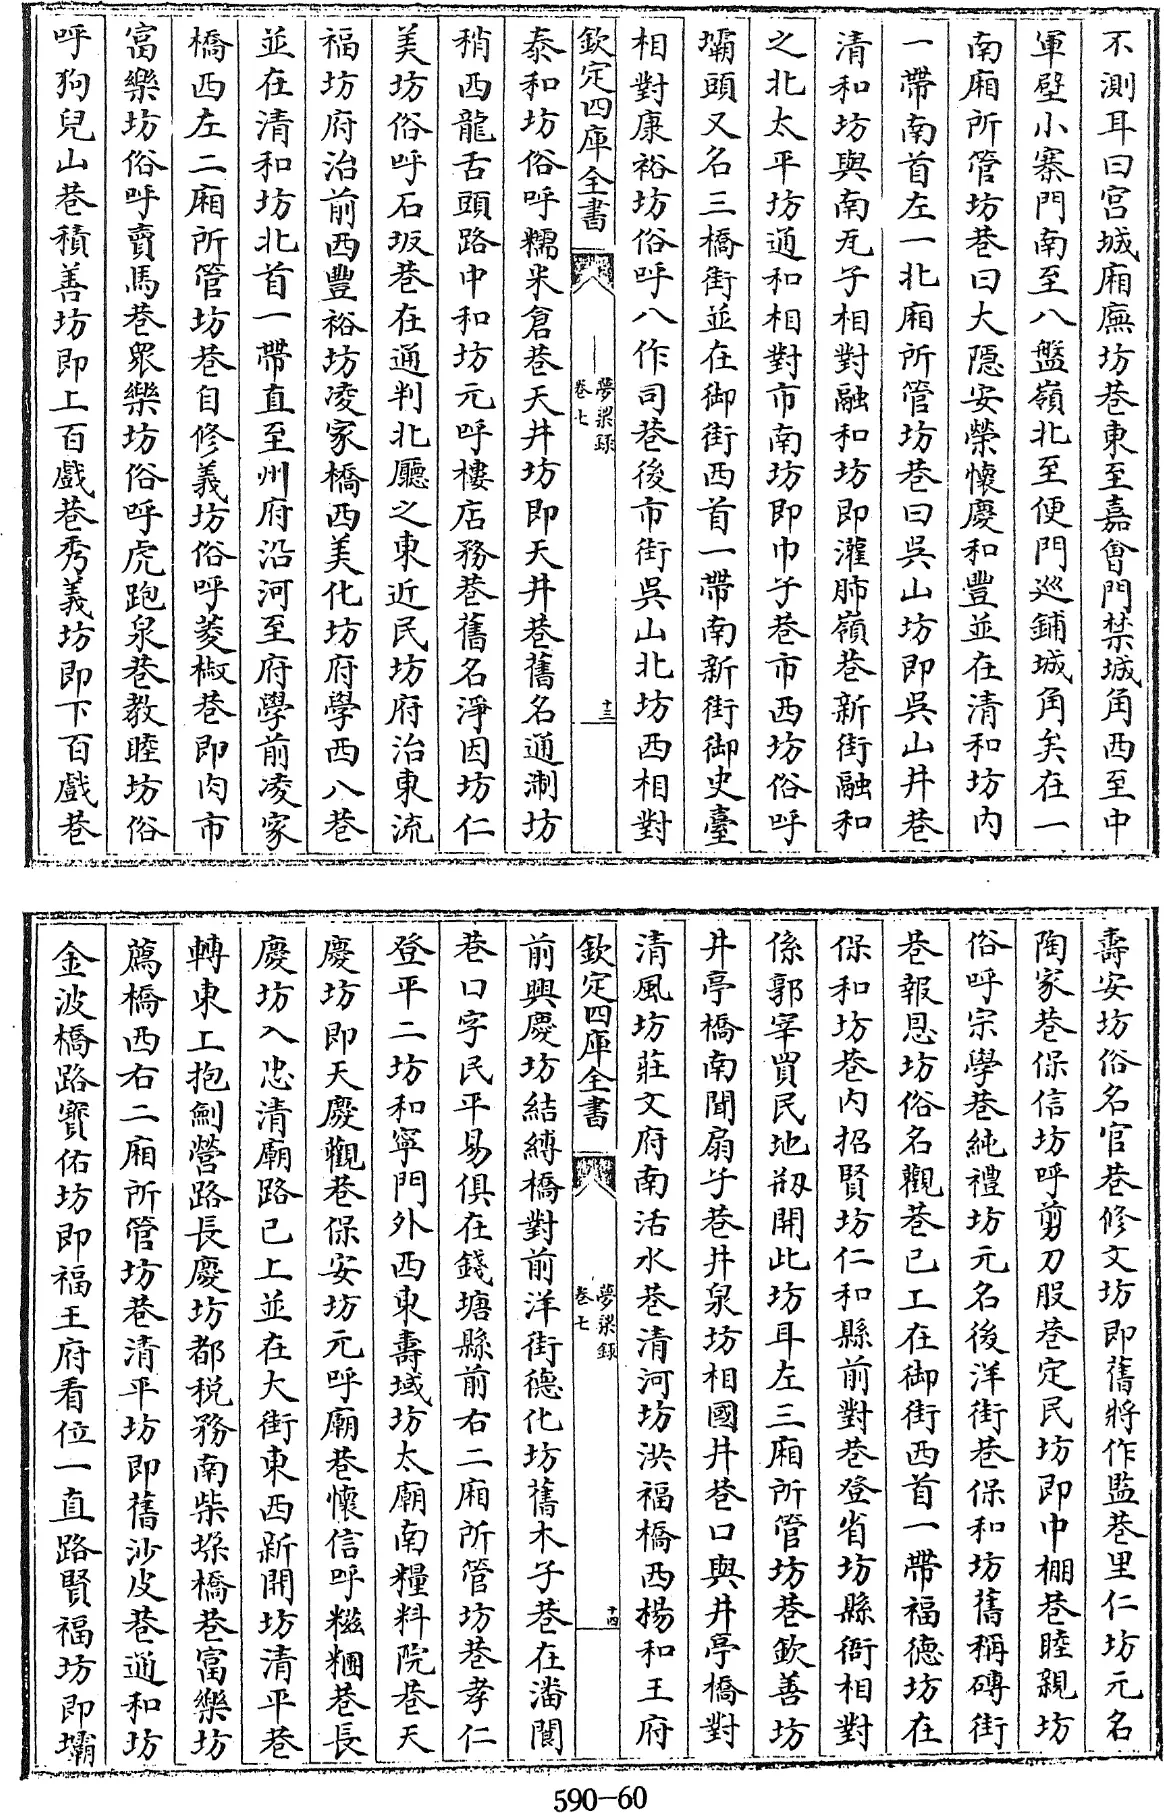 不測耳曰宫城廂廡坊巷東至嘉㑹門禁城角西至中
軍壁小寨門南至八盤嶺北至便門巡鋪城角矣在一
南廂所管坊巷曰大隱安榮懷慶和豐並在清和坊内
一帶南首左一北廂所管坊巷曰吳山坊即吳山井巷
清和坊與南瓦子相對融和坊即灌肺嶺巷新街融和
之北太平坊通和相對市南坊即巾子巷市西坊俗呼
壩頭又名三橋街並在御街西首一帶南新街御史臺
相對康裕坊俗呼八作司巷後市街吳山北坊西相對
欽定四庫全書
夢粱録
卷七
十三
泰和坊俗呼糯米倉巷天井坊即天井巷舊名通淛坊
稍西龍舌頭路中和坊元呼樓店務巷舊名淨因坊仁
美坊俗呼石坂巷在通判北廳之東近民坊府治東流
福坊府治前西豐裕坊凌家橋西美化坊府學西八巷
並在清和坊北首一帶直至州府沿河至府學前凌家
橋西左二廂所管坊巷自修義坊俗呼菱椒巷即肉市
富樂坊俗呼賣馬巷衆樂坊俗呼虎跑泉巷教睦坊俗
呼狗兒山巷積善坊即上百戲巷秀義坊即下百戲巷
壽安坊俗名官巷修文坊即舊將作監巷里仁坊元名
陶家巷保信坊呼剪刀股巷定民坊即中棚巷睦親坊
俗呼宗學巷純禮坊元名後洋街巷保和坊舊稱磚街
巷報恩坊俗名觀巷已工在御街西首一帶福德坊在
保和坊巷内招賢坊仁和縣前對巷登省坊縣衙相對
係郭宰買民地剏開此坊耳左三廂所管坊巷欽善坊
井亭橋南聞扇子巷井泉坊相國井巷口與井亭橋對
清風坊莊文府南活水巷清河坊洪福橋西楊和王府
欽定四庫全書
夢粱録
卷七
十四
前興慶坊結縛橋對前洋街德化坊舊木子巷在潘閬
巷口字民平易俱在錢塘縣前右二廂所管坊巷孝仁
登平二坊和寧門外西東壽域坊太廟南糧料院巷天
慶坊即天慶觀巷保安坊元呼廟巷懷信呼糍糰巷長
慶坊入忠清廟路已上並在大街東西新開坊清平巷
轉東工抱劍營路長慶坊都税務南柴垜橋巷富樂坊
薦橋西右二廂所管坊巷清平坊即舊沙皮巷通和坊
金波橋路寳佑坊即福王府看位一直路賢福坊即壩
590-60